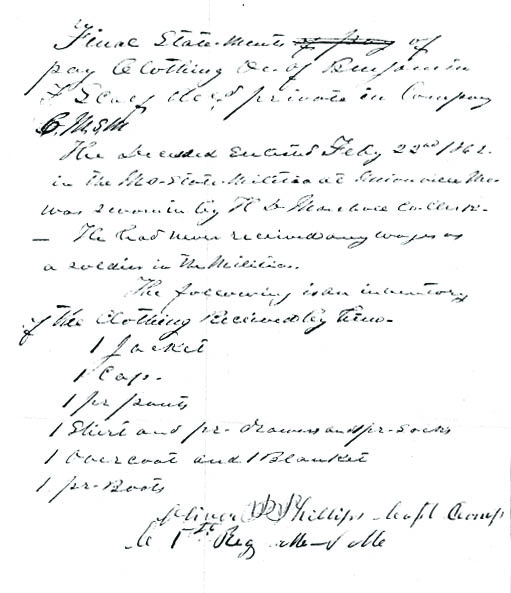 Final Statements of pay of
pay Clothing &c. of Benjamin
F decd private in Company
C. M.S.M
The deceased Enlisted Feby 22nd 1862.
in the Mo-State Militia at Unionville Mo
was sworn in by H D Marshall
— He had never received any wages as
a soldier in the Militia.
The following is an inventory
of the Clothing Received by him-
1 Jacket
1 Cap-
1 pr pants
1 Shirt and pr- drawers and pr-socks
1 Overcoat and 1 Blanket
1 pr-Boots
Phillips Capt Comp
1st Reg M-S M